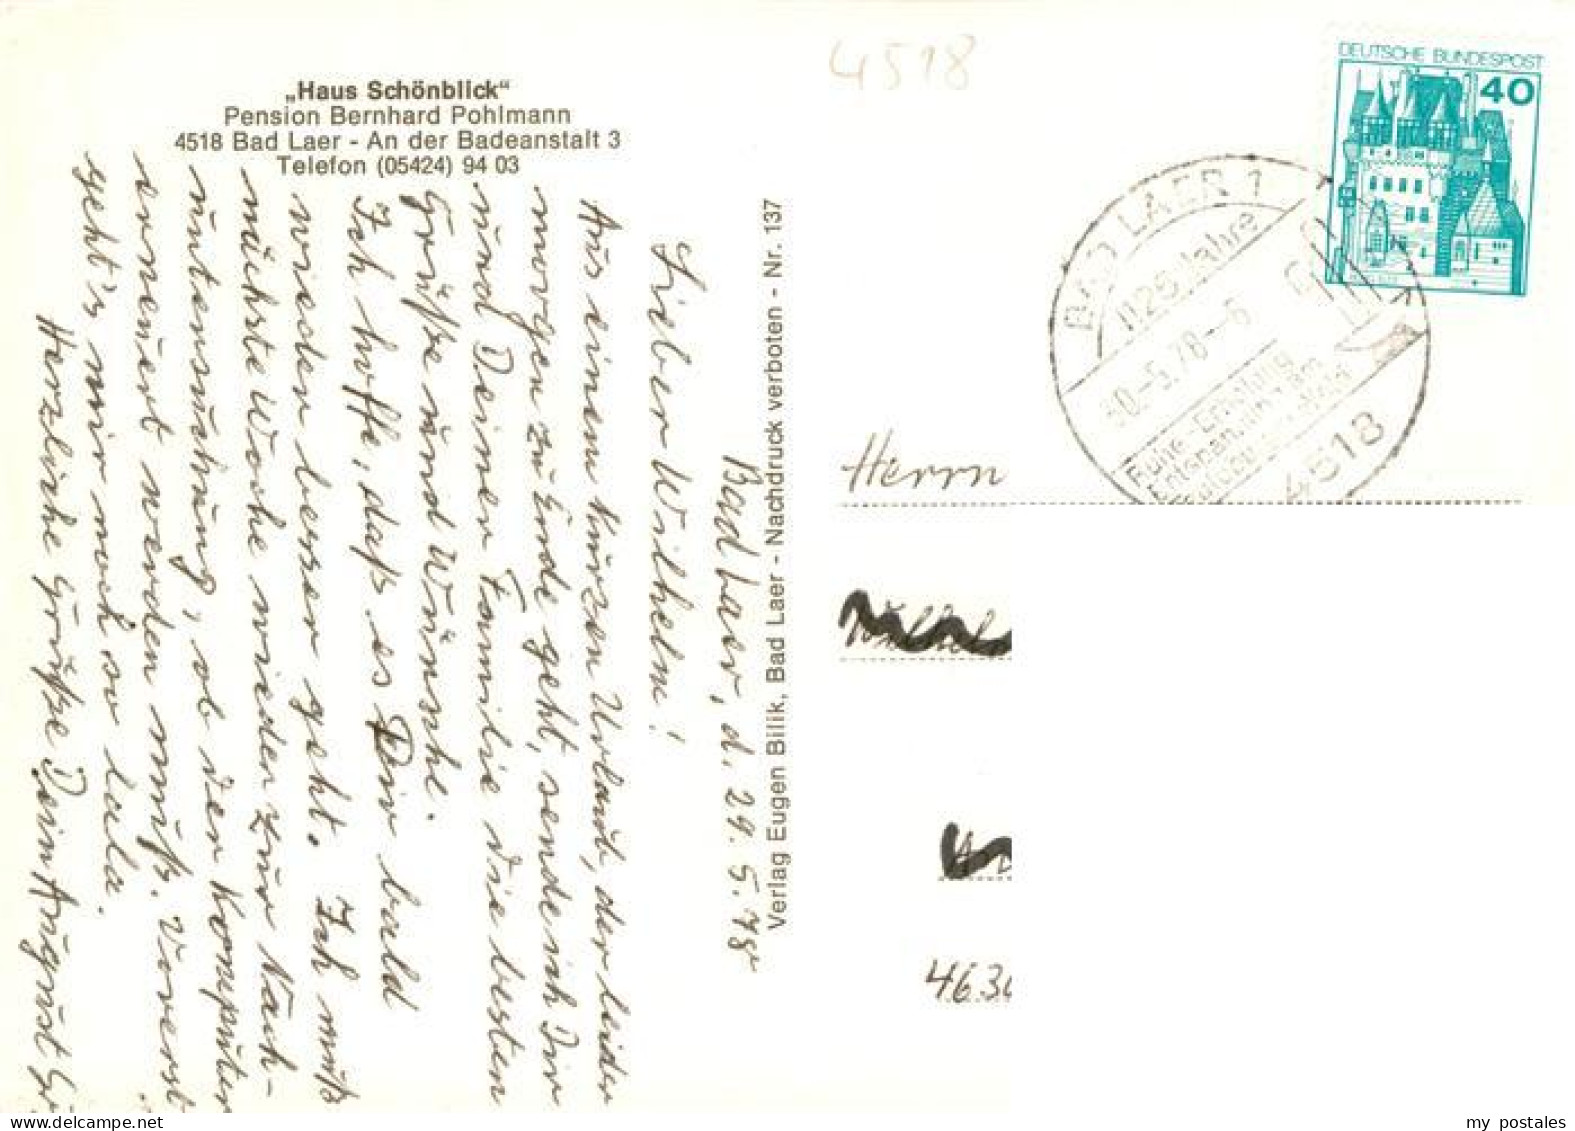 „Haus Schönblick"
Pension Bernhard Pohlmann
4518 Bad Laer - An der Badeanstalt 3
Telefon (05424) 94 03
Bad Laer, d. 29. 5. 78
Lieber Wilhelm!
Aus einem kurzen Urlaub, der leider
morgen zu Ende geht, sende ich Dir
und Deiner Familie die besten
Grüße und Wünsche.
Ich hoffe, daß es Dir bald
wieder besser geht. Ich muß
nächste Woche wieder zur Nach-
untersuchung, ob der Komputer
erneuert werden muß. Vorerst
geht's mir noch so lala.
Herzliche Grüße Dein August
Verlag Eugen Bilik, Bad Laer - Nachdruck verboten - Nr. 137
4518
DEUTSCHE BUNDESPOST
40
BAD LAER 1
1125 Jahre
30.-5.78-6
Ruhe-Erholung
Entspannung am
4518
Herrn
Wilhelm
463
my postales